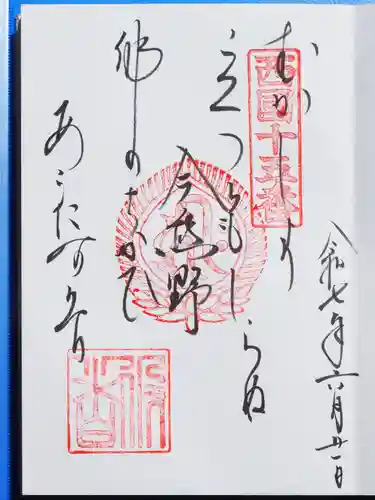 令和七年六月廿一日
西国十五番
むかしより
立つともしらぬ
今熊野
佛のちかひ
あらたなりけり